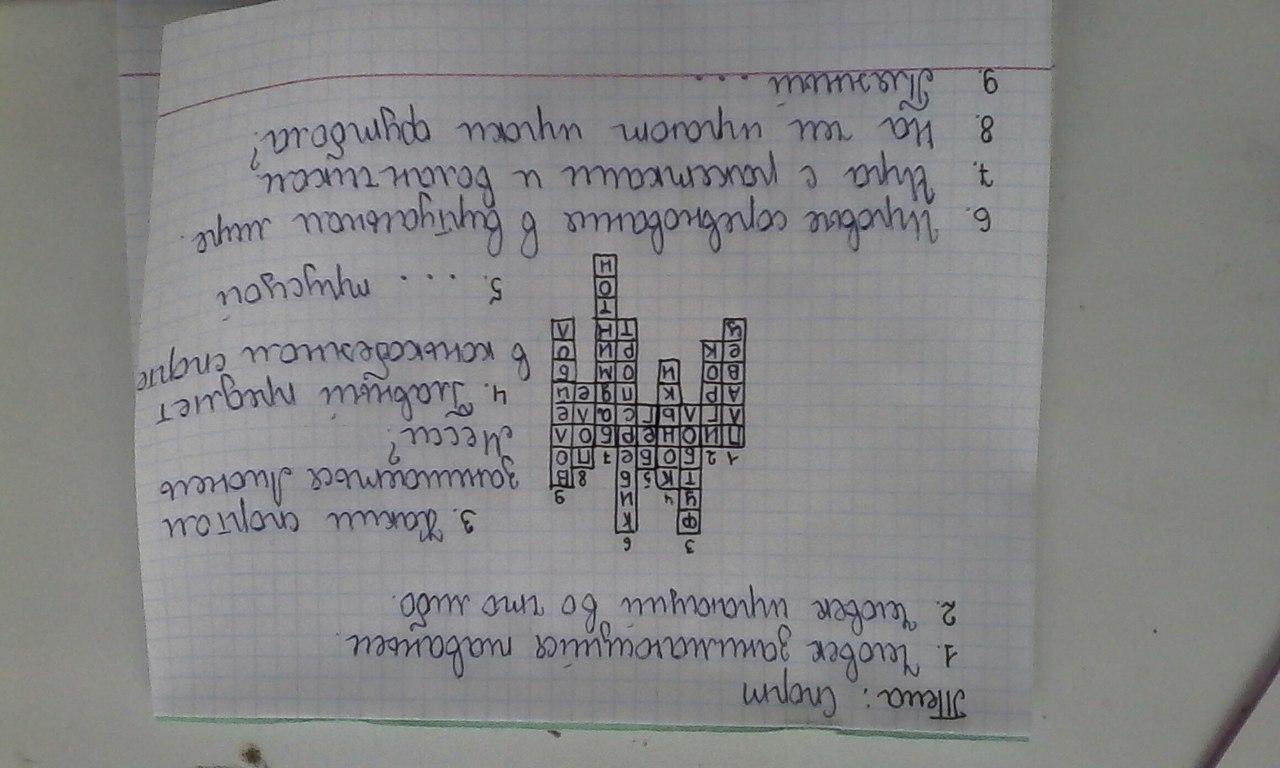 Тема: Спорт
1. Человек занимающийся плаваньем.
2. Человек играющий во что либо.
3 6
Ф К
У 4 И 9
Т К 5 Б 8 В
1 2 Б О Б Е 7 П О
П И О Н Е Р Б О Л
Л Г Л Ь Г С А Л Е
А Р К П Д Е Й
В О И О М Б
Е К Р И О
Ц Т Н Л
Т
О
Н
3. Каким спортом
занимается Лионель
Месси?
4. Главный предмет
в конькобежном спорте
5. ... трусцой
6. Игровое соревнование в виртуальном мире.
7. Игра с ракетками и воланчиком
8. На чём играют игроки футбола?
9. Пляжный ...